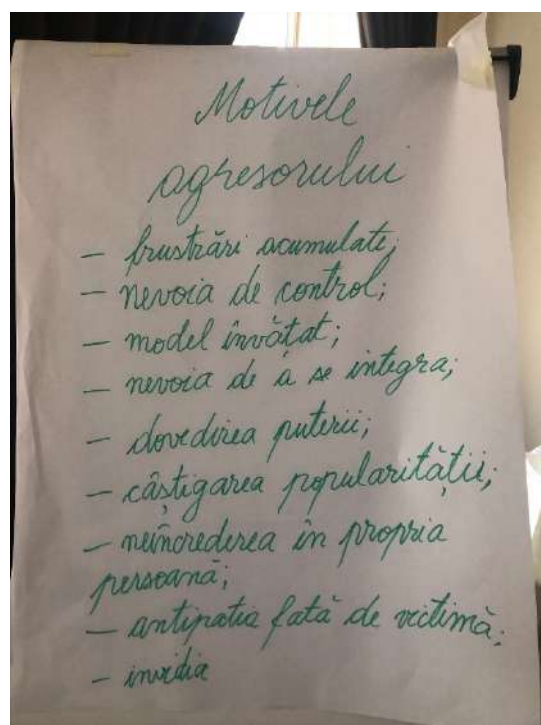 Motivele
agresorului
- frustrări acumulate;
- nevoia de control;
- model învățat;
- nevoia de a se integra;
- dovedirea puterii;
- câștigarea popularității;
- neîncrederea în propria
persoană;
- antipatia fată de victimă;
- invidia